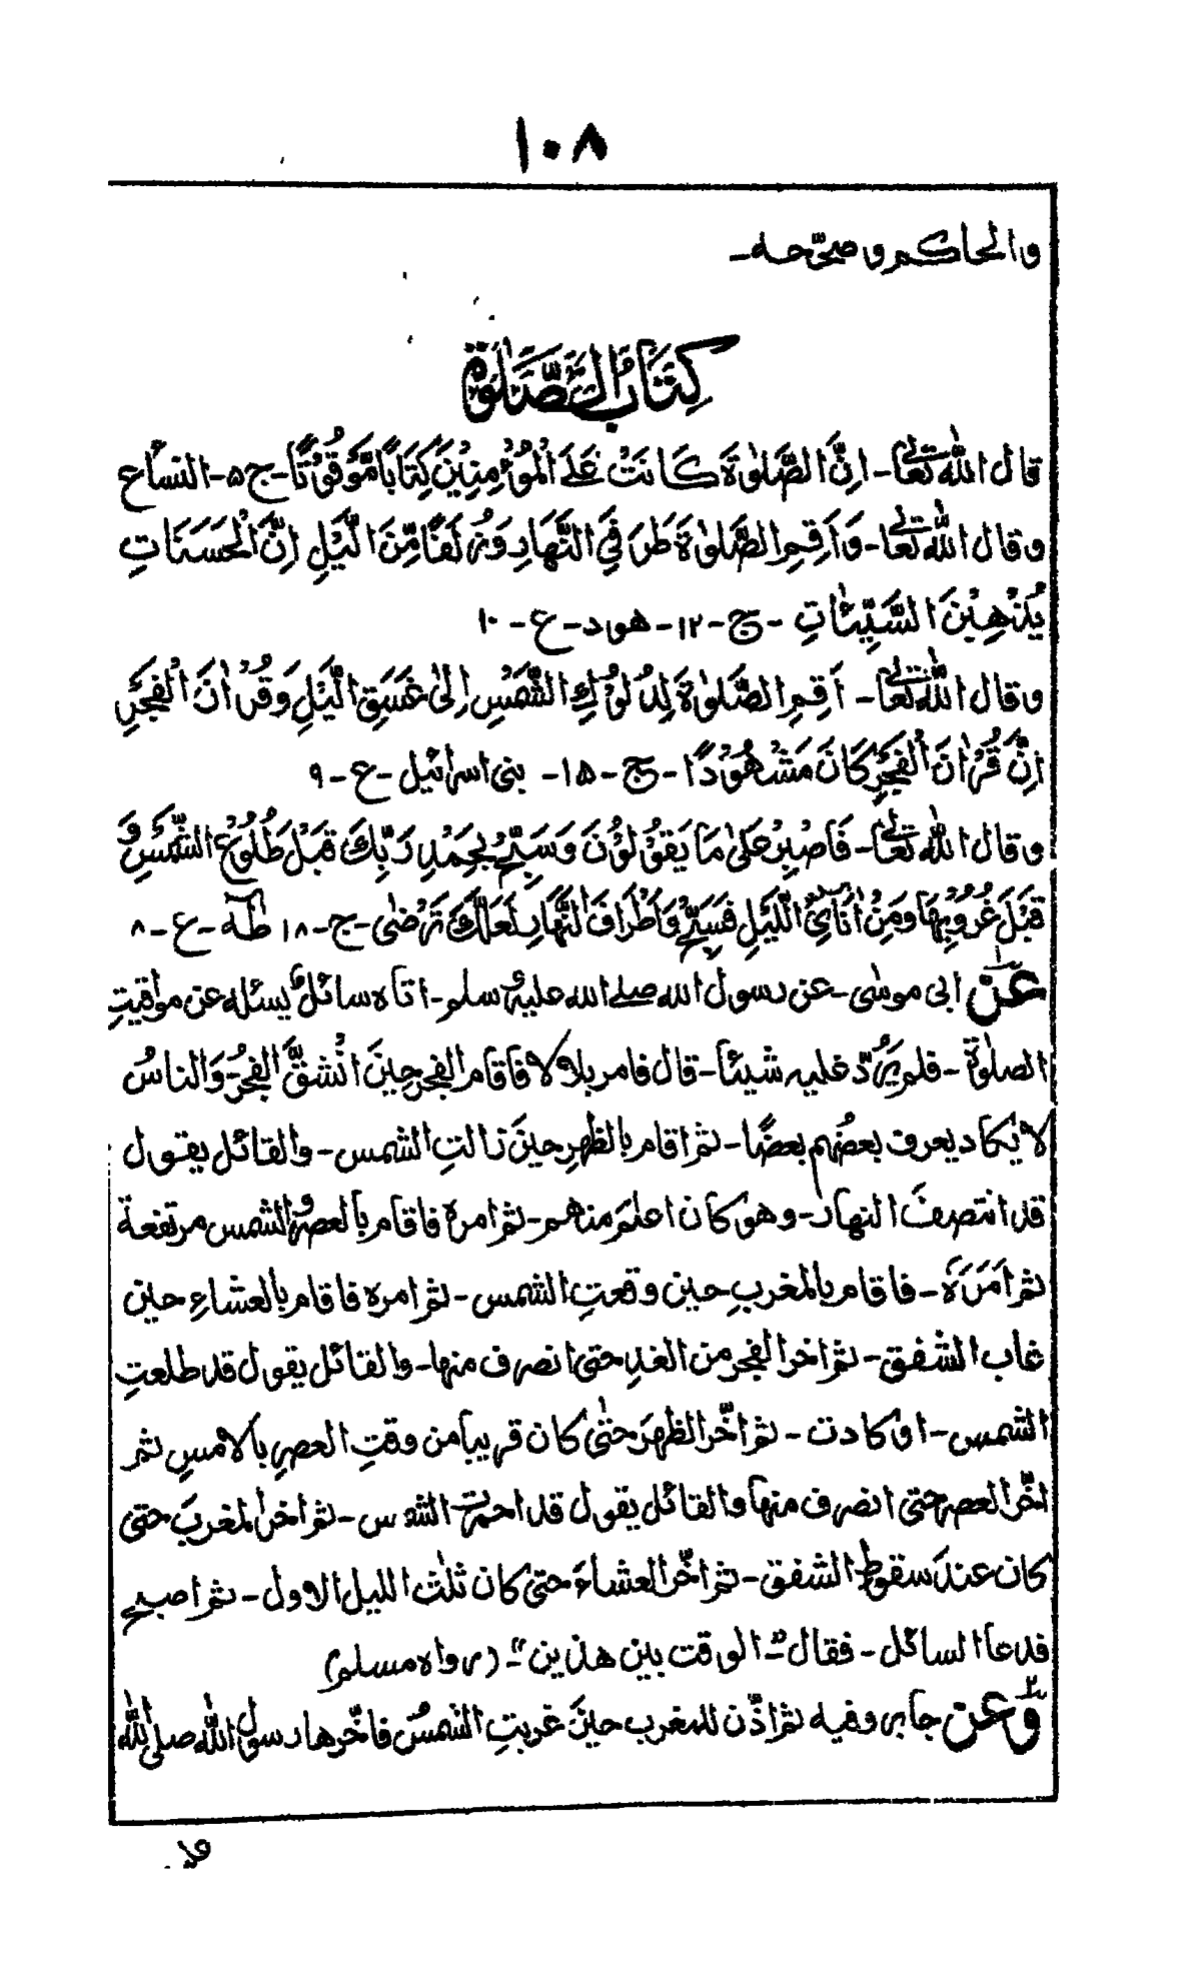 ١٠٨
والحاكم وصحّحه-
كِتَابُ الصَّلٰوة
قال الله تعالٰى- اِنَّ الصَّلٰوةَ كَانَتْ عَلَى الْمُؤْمِنِيْنَ كِتَابًا مَّوْقُوْتًا- ج ۵- النساء ع
وقال الله تعالٰى- وَاَقِمِ الصَّلٰوةَ طَرَفَيِ النَّهَارِ وَزُلَفًا مِّنَ الَّيْلِ اِنَّ الْحَسَنَاتِ
يُذْهِبْنَ السَّيِّئَاتِ - ج - ١٢ - هود - ع - ١٠
وقال الله تعالٰى- اَقِمِ الصَّلٰوةَ لِدُلُوْكِ الشَّمْسِ اِلٰى غَسَقِ الَّيْلِ وَقُرْاٰنَ الْفَجْرِ
اِنَّ قُرْاٰنَ الْفَجْرِ كَانَ مَشْهُوْدًا - ج - ١۵ - بنى اسرائيل - ع - ٩
وقال الله تعالٰى- فَاصْبِرْ عَلٰى مَا يَقُوْلُوْنَ وَسَبِّحْ بِحَمْدِ رَبِّكَ قَبْلَ طُلُوْعِ الشَّمْسِ وَ
قَبْلَ غُرُوْبِهَا وَمِنْ اٰنَآئِ الَّيْلِ فَسَبِّحْ وَاَطْرَافَ النَّهَارِ لَعَلَّكَ تَرْضٰى - ج - ١٨ طٰهٰ - ع - ٨
عن ابى موسٰى - عن رسول الله صلى الله عليه وسلم - اتاه سائلٌ يسئله عن مواقيتِ
الصلوٰة - فلم يَرُدّ عليه شيئا - قال فامر بلالا فاقام الفجر حِينَ انْشَقَّ الفجرُ - وَالناسُ
لا يكاد يعرف بعضُهم بعضًا - ثم اقام بالظهرِ حينَ زالتِ الشمس - والقائل يقول
قد انتصفَ النهار - وهو كان اعلمَ منهم - ثم امره فاقام بالعصر والشمس مرتفعة
ثم اَمَرَهٗ - فاقام بالمغربِ حين وقعتِ الشمس - ثم امره فاقام بالعشاءِ حين
غاب الشفق - ثم اخر الفجر من الغدِ حتى انصرف منها - والقائل يقول قد طلعتِ
الشمس - او كادت - ثم اخّر الظهرَ حتّٰى كان قريبا من وقتِ العصرِ بالامسِ ثم
اخّر العصر حتى انصرف منها والقائل يقول قد احمرّت الشمس - ثم اخر المغربَ حتى
كان عندَ سقوطِ الشفق - ثم اخّر العشاءَ حتى كان ثلث الليل الاول - ثم اصبح
فدعا السائل - فقال "الوقت بين هذين" - (رواه مسلم)
٢ وعن جابر وفيه ثم اذّن للمغرب حينَ غربتِ الشمس فاخّرها رسول الله صلى الله